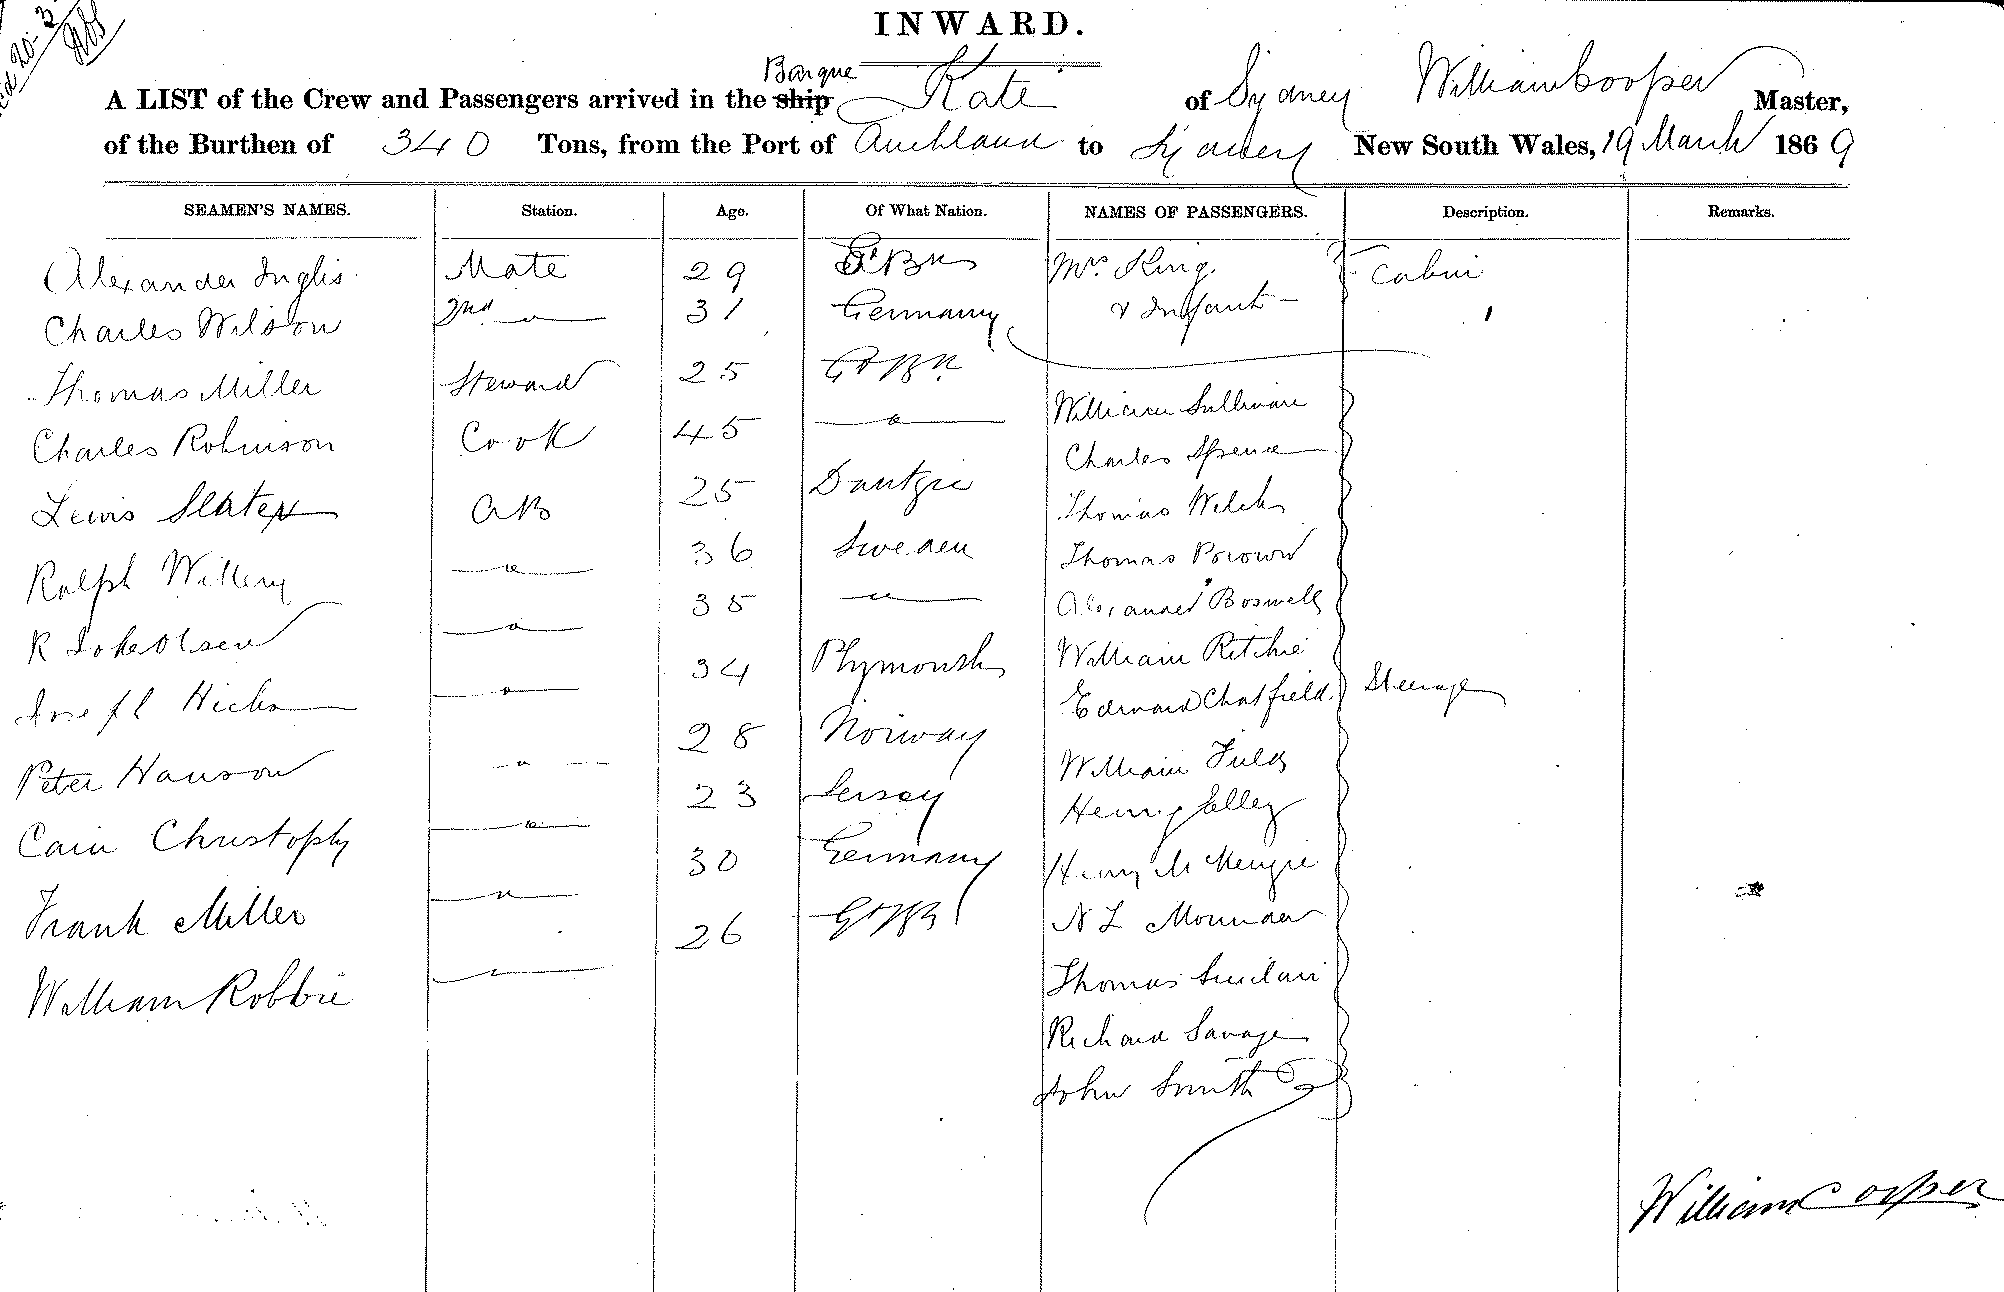 INWARD.
Barque
A LIST of the Crew and Passengers arrived in the ship Kate of Sydney William Cooper Master,
of the Burthen of 340 Tons, from the Port of Auckland to Sydney New South Wales, 19 March 1869
SEAMEN'S NAMES. Station. Age. Of What Nation. NAMES OF PASSENGERS. Description. Remarks.
Alexander Inglis Mate 29 Gt Bn Mrs. King Cabin
Charles Wilson 2nd " 31 Germany & Infant
Thomas Miller Steward 25 Gt Bn
Charles Robinson Cook 45 " William Sullivan
Charles Spence
Lewis Slater AB 25 Dantzic Thomas Welch
Ralph 36 Sweden Thomas Brown
" 35 " Alexander Boswell
R " 34 Plymouth William Ritchie
Joseph Hicks " 28 Norway Edward Chatfield Steerage
Peter Hanson " 23 Jersey William Field
Henry
Cain Christoply " 30 Germany Henry McKenzie
Frank Miller " 26 Gt Bn N L
William Robbie " Thomas Sinclair
Richard Savage
John Smith
William Cooper